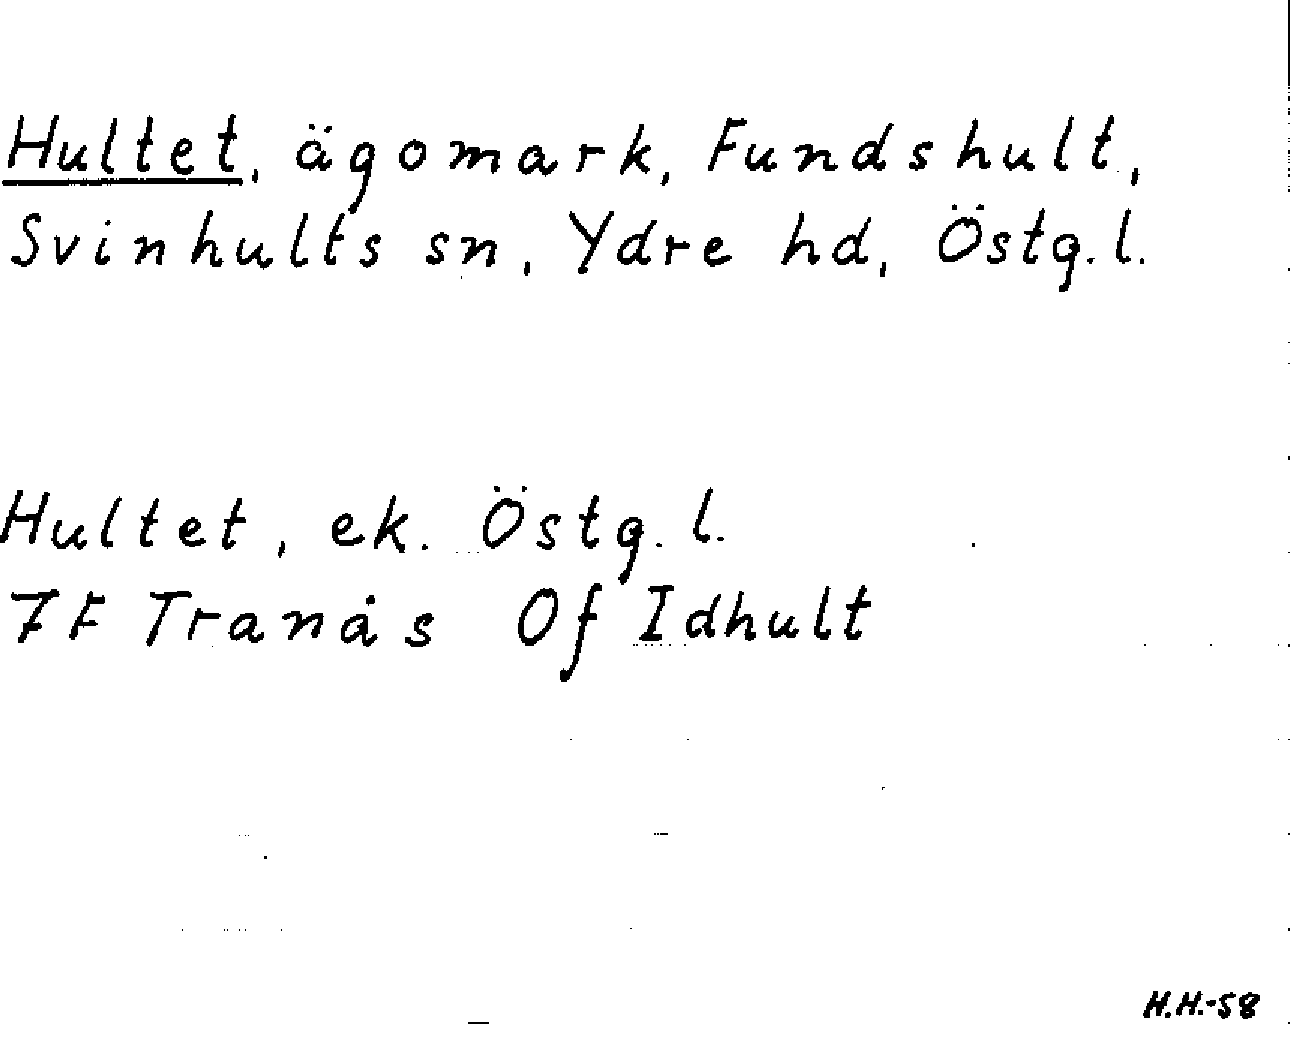 Hultet, ägomark, Fundshult,
Svinhults sn, Ydre hd, Östg. l.
Hultet, ek. Östg. l.
7F Tranås Of Idhult
H.H.-58